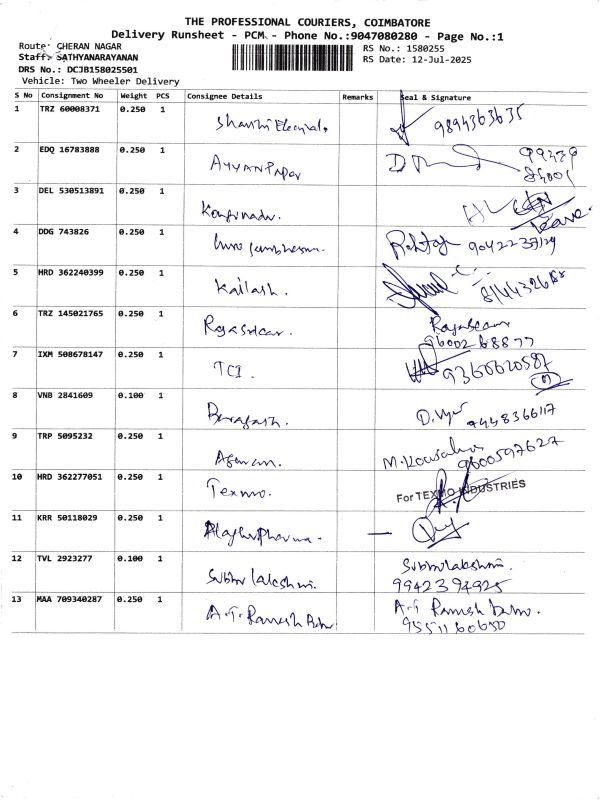 THE PROFESSIONAL COURIERS, COIMBATORE
Delivery Runsheet - PCM - Phone No.:9047080280 - Page No.:1
Route: CHERAN NAGAR
RS No.: 1580255
Staff: SATHYANARAYANAN
RS Date: 12-Jul-2025
DRS No.: DCJB158025501
Vehicle: Two Wheeler Delivery
S No Consignment No Weight PCS Consignee Details Remarks Seal & Signature
1 TRZ 60008371 0.250 1 9894363635
2 EDQ 16783888 0.250 1 AYYAN Paper
3 DEL 530513891 0.250 1
4 DDG 743826 0.250 1
5 HRD 362240399 0.250 1 Kailash.
6 TRZ 145021765 0.250 1 Rajasekar.
96002 68877
7 IXM 508678147 0.250 1 TCI. 9360620587
8 VNB 2841609 0.100 1 9448366117
9 TRP 5095232 0.250 1 M.Kowsalya 9600597627
10 HRD 362277051 0.250 1 Texmo. For TEXMO INDUSTRIES
11 KRR 50118029 0.250 1
12 TVL 2923277 0.100 1 Subbu lakshmi. Subbulakshmi.
9942394925
13 MAA 709340287 0.250 1 A.T. Ramesh Babu A.T Ramesh Babu.
9551160650